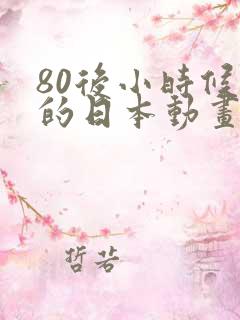 80後小時候
的日本動畫
哲若